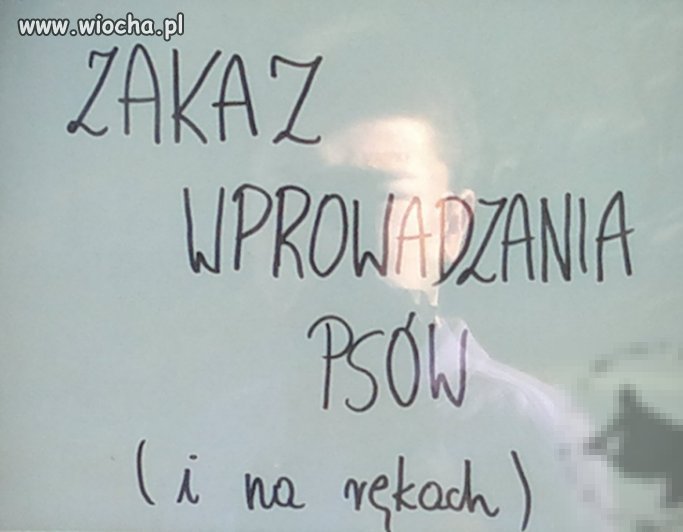 www.wiocha.pl
ZAKAZ
WPROWADZANIA
PSÓW
(i na rękach)